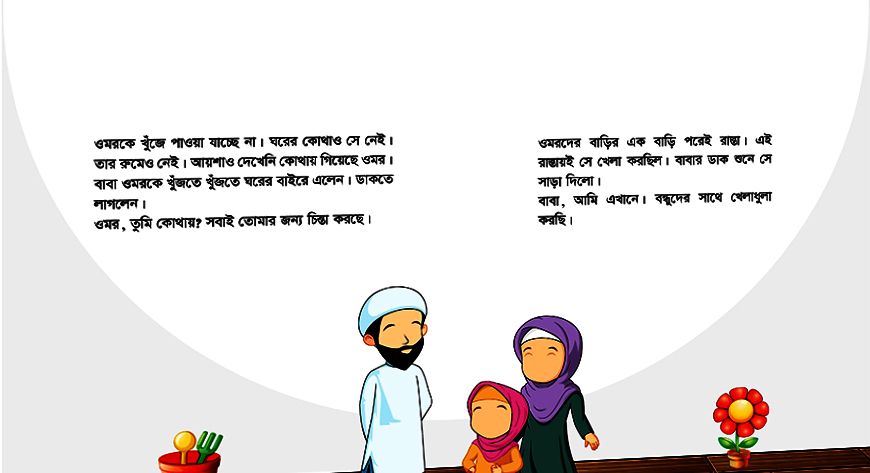 ওমরকে খুঁজে পাওয়া যাচ্ছে না। ঘরের কোথাও সে নেই।
তার রুমেও নেই। আয়শাও দেখেনি কোথায় গিয়েছে ওমর।
বাবা ওমরকে খুঁজতে খুঁজতে ঘরের বাইরে এলেন। ডাকতে
লাগলেন।
ওমর, তুমি কোথায়? সবাই তোমার জন্য চিন্তা করছে।
ওমরদের বাড়ির এক বাড়ি পরেই রাস্তা। এই
রাস্তায়ই সে খেলা করছিল। বাবার ডাক শুনে সে
সাড়া দিলো।
বাবা, আমি এখানে। বন্ধুদের সাথে খেলাধুলা
করছি।